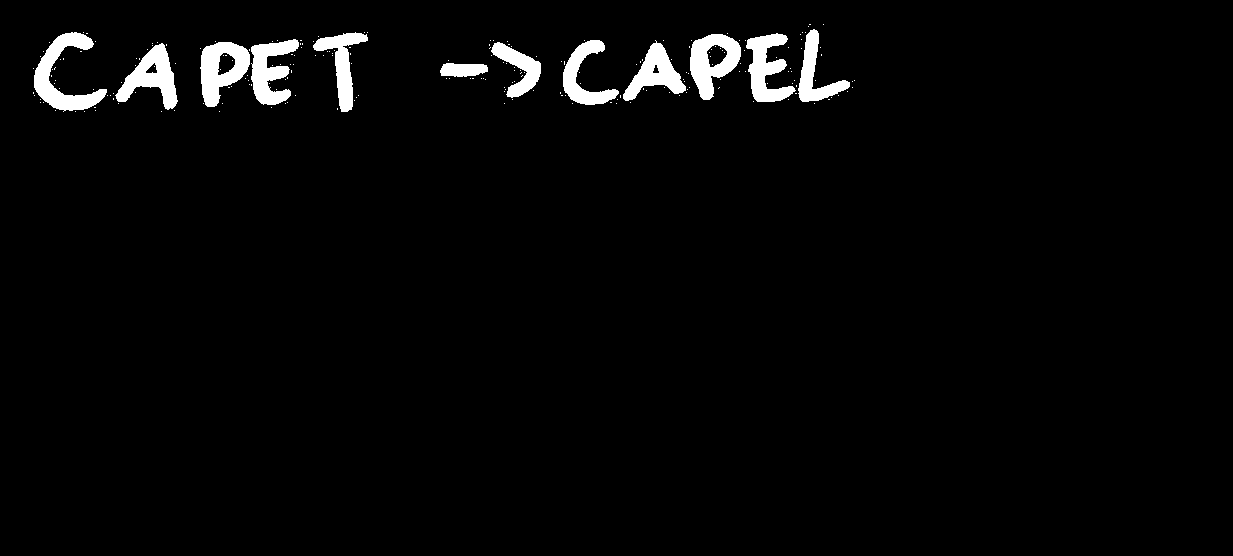 CAPET ->CAPEL